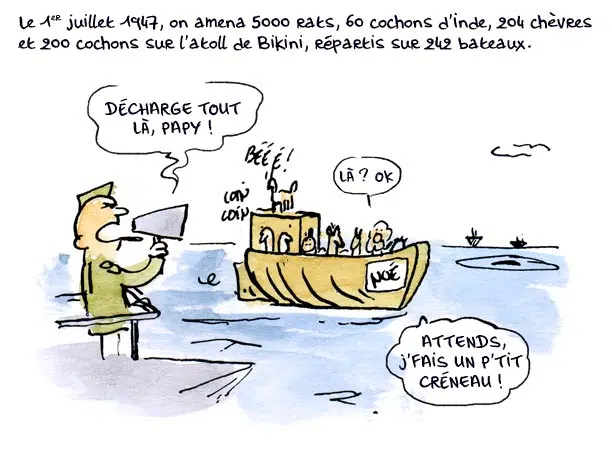 Le 1er juillet 1947, on amena 5000 rats, 60 cochons d'inde, 204 chèvres
et 200 cochons sur l'atoll de Bikini, répartis sur 242 bateaux.
DÉCHARGE TOUT
LÀ, PAPY !
BÉÉÉ!
COIN
COIN
LÀ ? OK
NOÉ
ATTENDS,
J'FAIS UN P'TIT
CRÉNEAU !